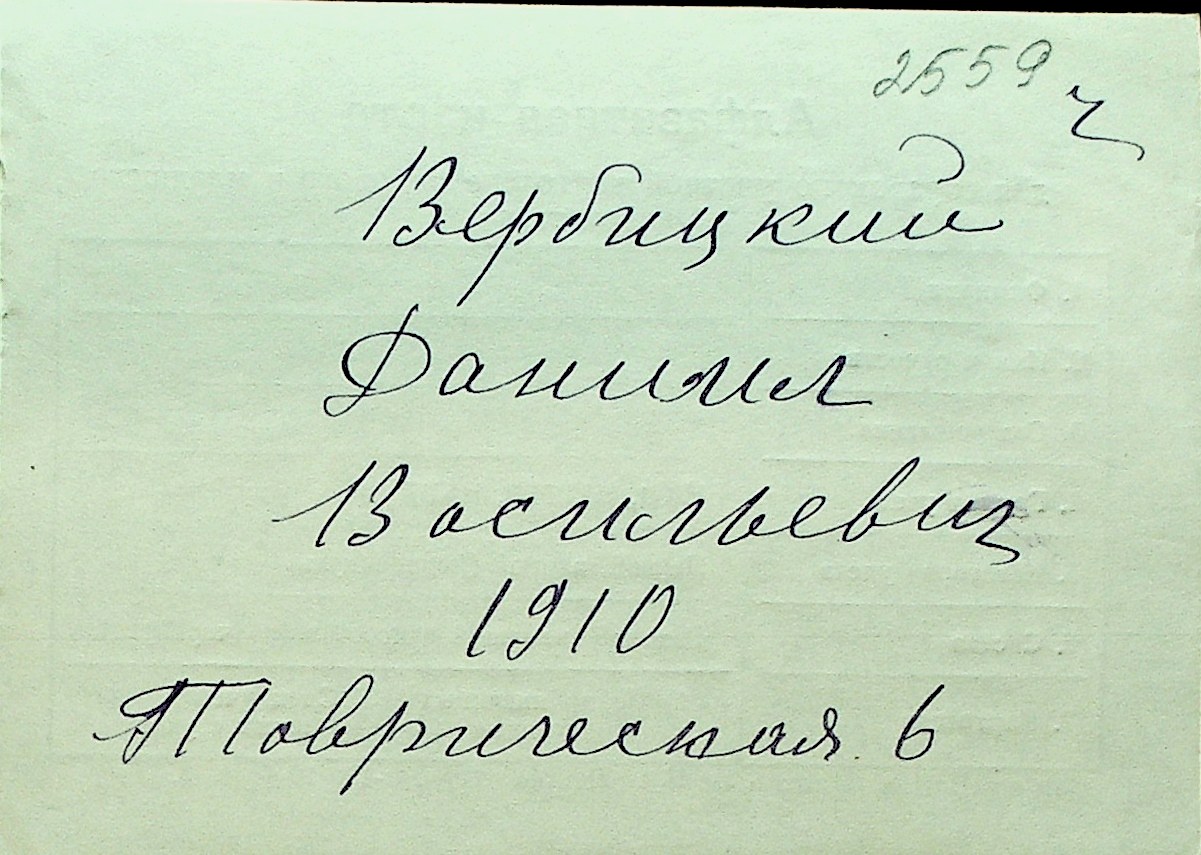 2559 ч
Вербицкий
Даниил
Васильевич
1910
Таврическая 6